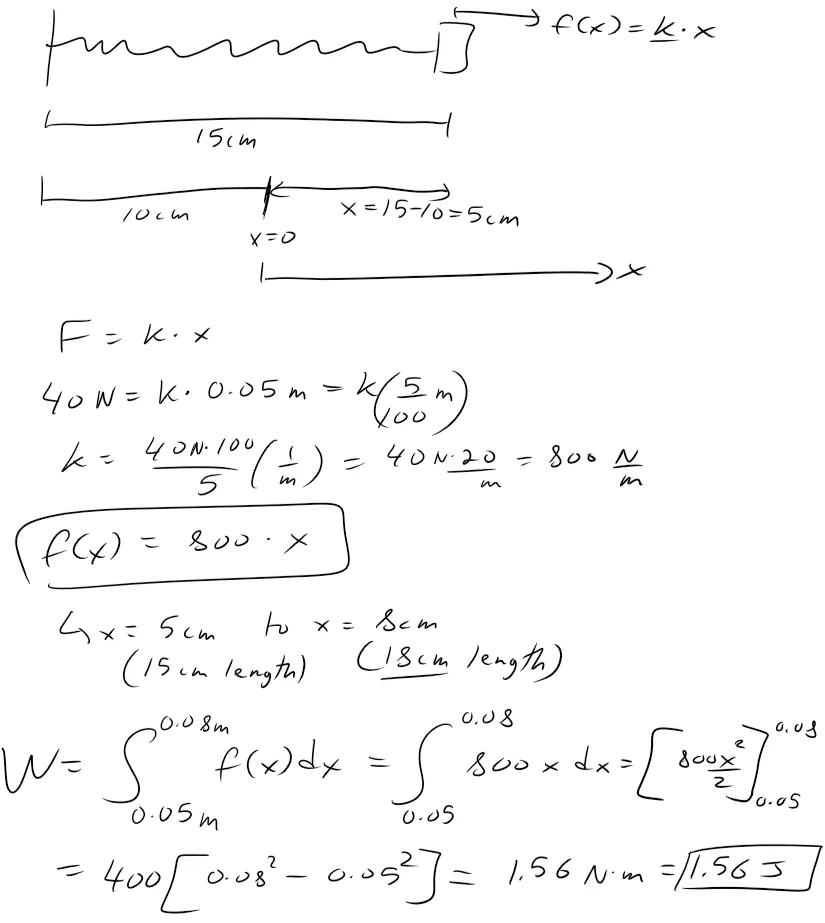 f(x) = k · x
15cm
10cm
x = 15-10 = 5cm
x=0
x
F = k · x
40 N = k · 0.05 m = k(5/100 m)
k = 40N·100/5 (1/m) = 40 N·20/m = 800 N/m
f(x) = 800 · x
↳ x = 5cm to x = 8cm
(15cm length) (18cm length)
W = ∫_{0.05m}^{0.08m} f(x)dx = ∫_{0.05}^{0.08} 800 x dx = [800x²/2]_{0.05}^{0.08}
= 400[0.08² - 0.05²] = 1.56 N·m = 1.56 J